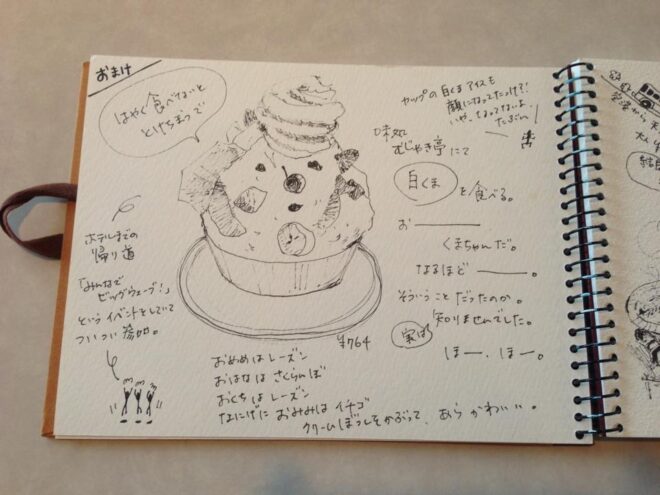 おまけ
はやく食べないと
とけちぼうで
カップの白くまアイスも
顔になってたっけ?!
いや、なってないよ、
たぶん!
味処
むじゃき亭にて
白くま を食べる。
お———
くまちゃんだ。
なるほど———。
そういうことだったのか。
実は 知りませんでした。
ほー、ほー。
ホテルまでの
帰り道
「みんなで
ビッグウェーブ!」
というイベントをしていて
ついつい参加。
¥764
おめめはレーズン
おはなは さくらんぼ
おくちはレーズン
なにげに おみみは イチゴ
クリームぼうしをかぶって、あら かわいい。